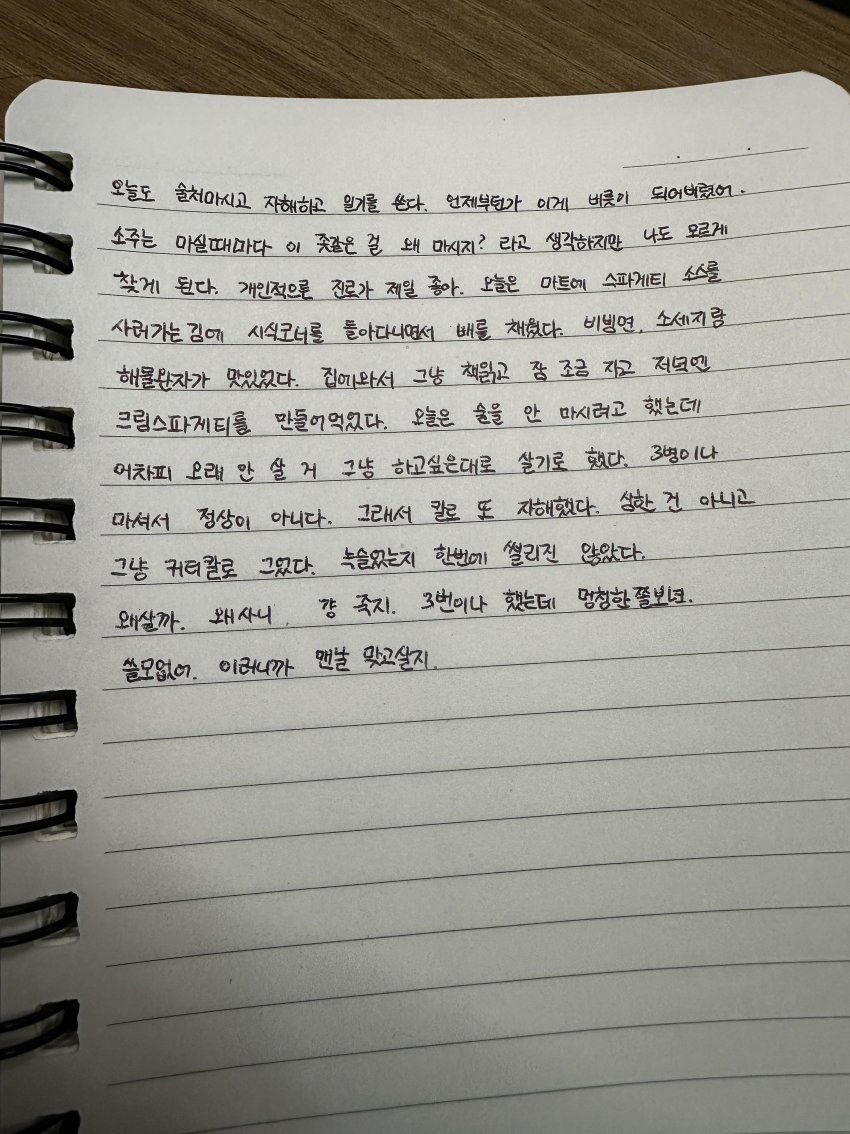 오늘도 술처마시고 자해하고 일기를 쓴다. 언제부턴가 이게 버릇이 되어버렸어.
소주는 마실때마다 이 좆같은 걸 왜 마시지? 라고 생각하지만 나도 모르게
찾게 된다. 개인적으론 진로가 제일 좋아. 오늘은 마트에 스파게티 소스를
사러가는김에 시식코너를 돌아다니면서 배를 채웠다. 비빔면, 소세지랑
해물완자가 맛있었다. 집에와서 그냥 책읽고 잠 조금 자고 저녁엔
크림스파게티를 만들어먹었다. 오늘은 술을 안 마시려고 했는데
어차피 오래 안 살 거 그냥 하고싶은대로 살기로 했다. 3병이나
마셔서 정상이 아니다. 그래서 칼로 또 자해했다. 심한 건 아니고
그냥 커터칼로 그었다. 녹슬었는지 한번에 썰리진 않았다.
왜살까. 왜사니. 걍 죽지. 3번이나 했는데 멍청한쫄보년.
쓸모없어. 이러니까 맨날 맞고살지.